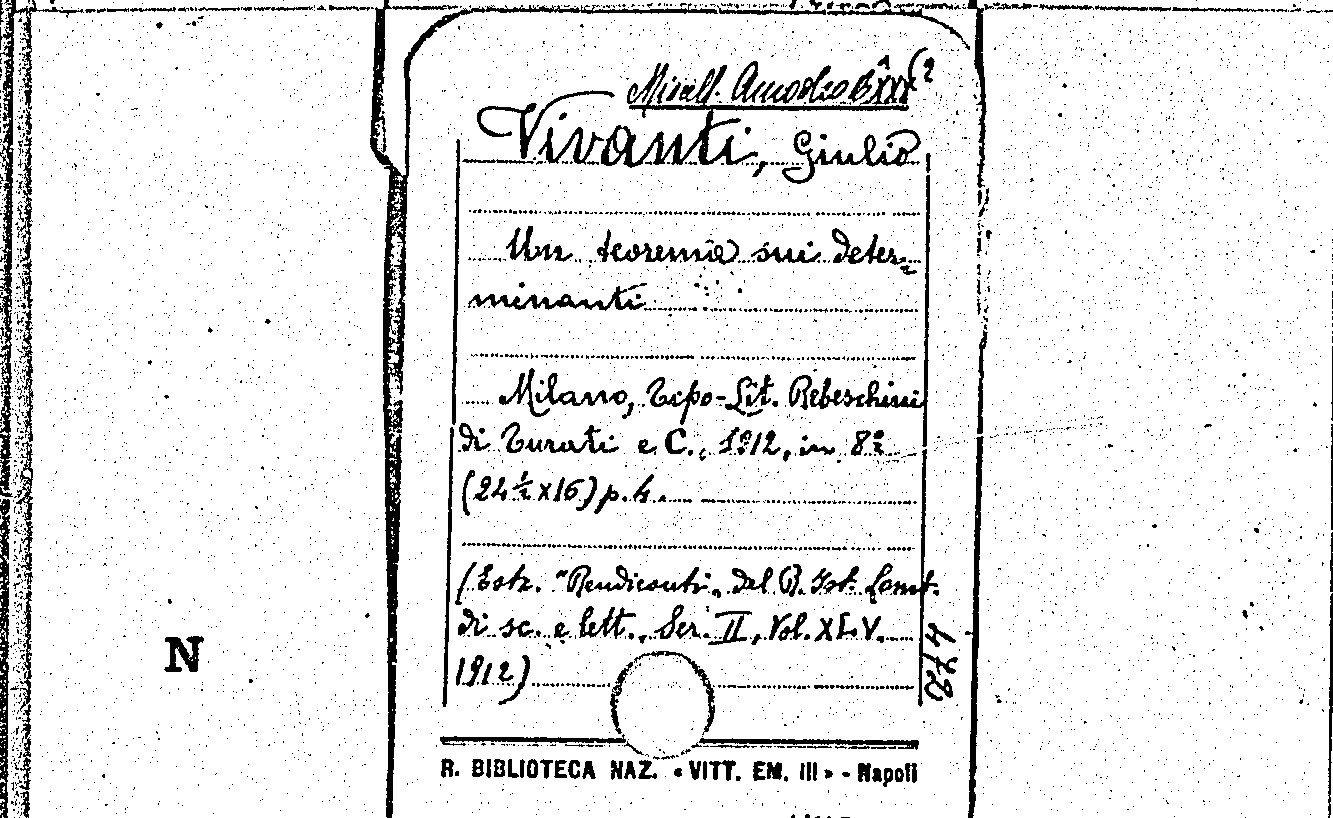 Miscell. Amodeo B XXX (2
Vivanti, Giulio
Un teorema sui deter=
minanti
Milano, Tipo-Lit. Rebeschini
di Turati e C., 1912, in 8º
(24 ½ x 16) p. 4.
(Estr. "Rendiconti" del R. Ist. Lomb.
di sc. e lett., Ser. II, Vol. XLV.
1912)
472
N
R. BIBLIOTECA NAZ. « VITT. EM. III » - Napoli